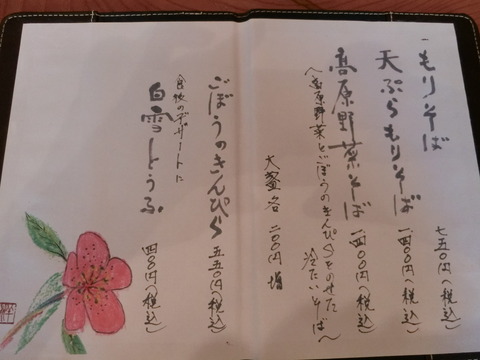 もりそば 七五〇円(税込)
天ぷらもりそば 一四〇〇円(税込)
高原野菜そば 一四〇〇円(税込)
(高原野菜とごぼうのきんぴらをのせた冷たいそば)
大盛各 二〇〇円 増
ごぼうのきんぴら 五五〇円(税込)
食後のデザートに
白雪とうふ 四〇〇円(税込)